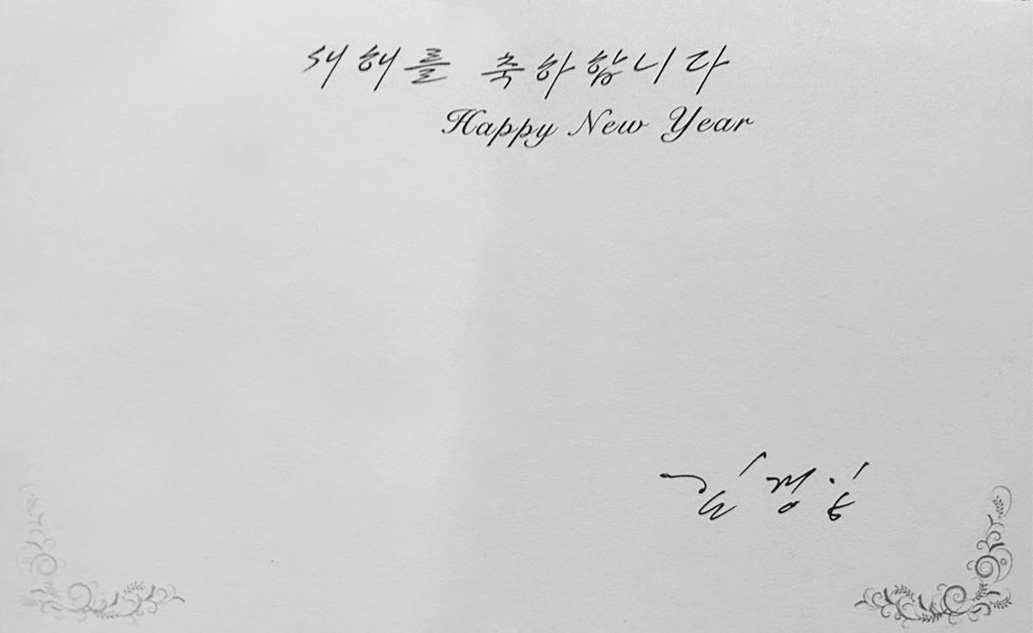 새해를 축하합니다
Happy New Year